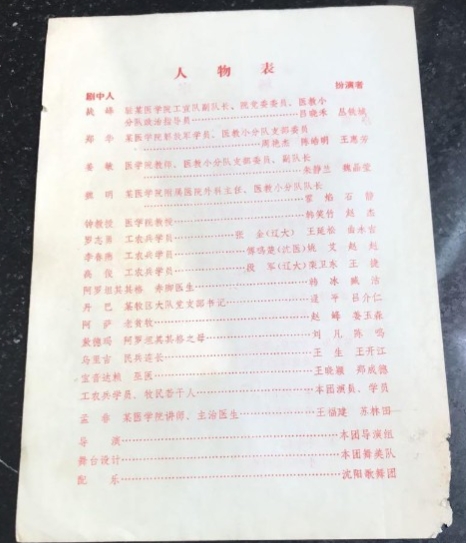 人 物 表
剧中人 扮演者
某医学院工宣队副队长、院党委委员、医教小
分队政治指导员……吕晓禾
郑 某医学院新收军学员、医教小分队支部委员
……周艳杰 陈皓明 王惠芳
姜敏 医学院教师、医教小分队支部委员、副队长
……朱静兰 魏晶莹
某医学院附属医院外科主任、医教小分队队长
……石静
钟教授 医学院教授……韩笑竹 赵杰
罗志勇 工农兵学员……张金(辽大) 王延松 曲永吉
李春燕 工农兵学员……傅鸣楚(沈医) 姚艾 赵越
高俊 工农兵学员……段军(辽大) 栾卫东 王
阿罗坦其其格 赤脚医生……韩冰 臧洁
丹巴 某牧区大队党支部书记……逄平 吕介仁
阿萨 老黄牧……赵峰 姜玉森
敖德玛 阿罗坦其其格之母……刘儿 陈鸣
乌里吉 民兵连长……王生 王开江
宝音达赖 巫医……王晓颖 郑成德
工农兵学员、牧民若干人……本团演员、学员
孟春 某医学院讲师、主治医生……王福建 苏林田
导演……本团导演组
舞台设计……本团舞美队
配乐……沈阳歌舞团